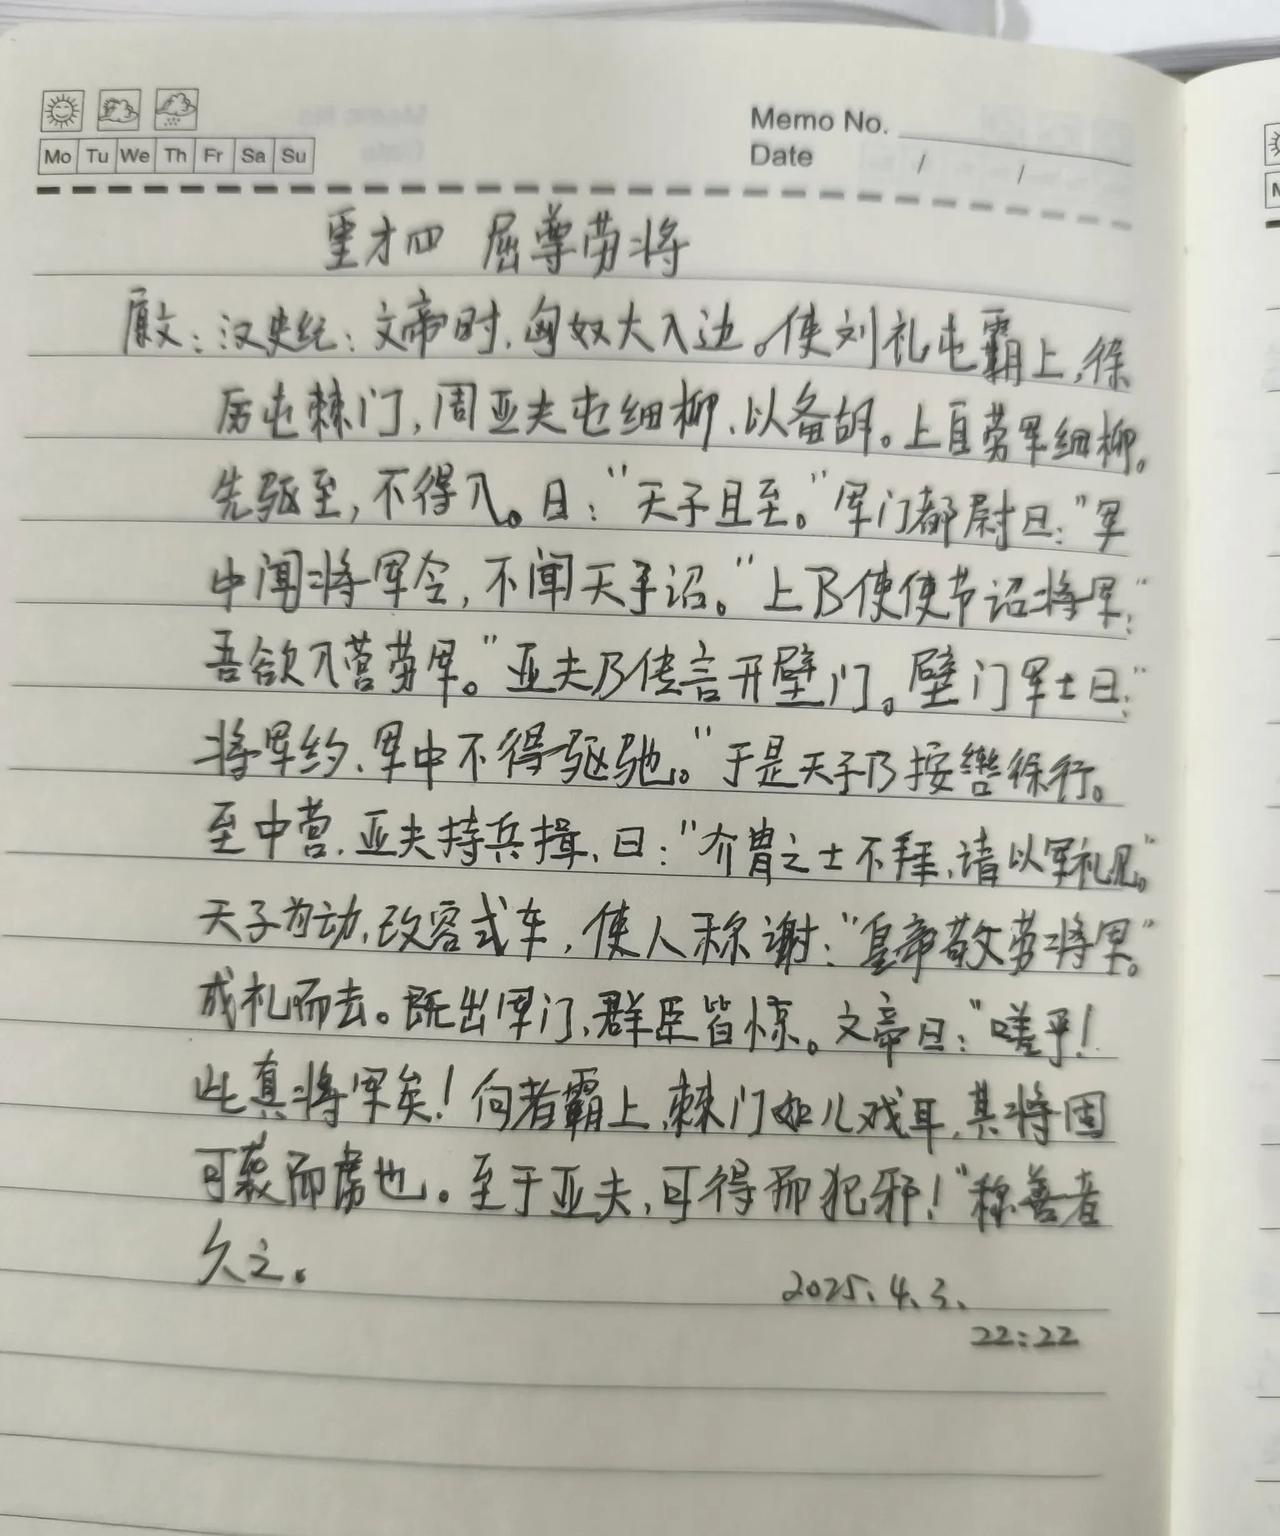 Mo Tu We Th Fr Sa Su
Memo No.
Date / /
圣才四 屈尊劳将
原文：汉史纪：文帝时，匈奴大入边。使刘礼屯霸上，徐
厉屯棘门，周亚夫屯细柳、以备胡。上自劳军细柳。
先驱至，不得入。曰："天子且至。"军门都尉曰："军
中闻将军令，不闻天子诏。"上乃使使节诏将军："
吾欲入营劳军。"亚夫乃传言开壁门。壁门军士曰："
将军约、军中不得驱驰。"于是天子乃按辔徐行。
至中营，亚夫持兵揖、曰："介胄之士不拜，请以军礼见。"
天子为动，改容式车，使人称谢："皇帝敬劳将军。"
成礼而去。既出军门，群臣皆惊。文帝曰："嗟乎！
此真将军矣！向者霸上、棘门如儿戏耳，其将固
可袭而虏也。至于亚夫，可得而犯邪！"称善者
久之。
2025.4.3.
22:22